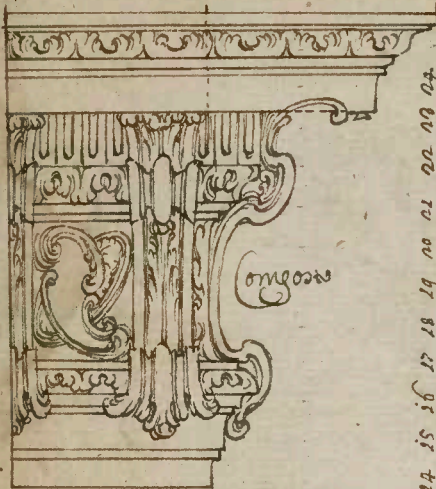 Compose
14 15 16 17 18 19 20 21 22 23 24